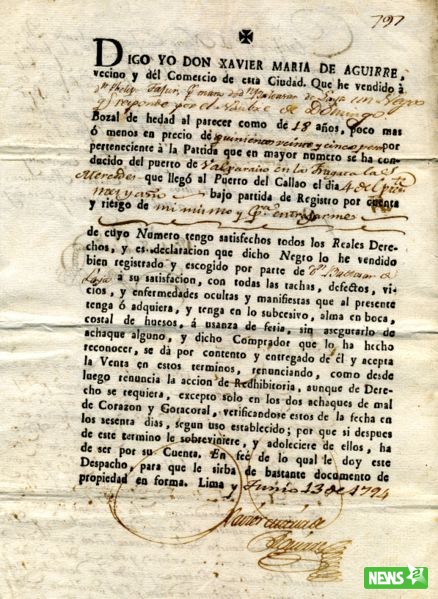 797
DIGO YO DON XAVIER MARIA DE AGUIRRE,
vecino y dél Comercio de esta Ciudad. Que he vendido à
un Negro
que responde por el Nombre de Domingo
Bozal de hedad al parecer como de 18 años, poco mas
ó ménos en precio de quinientos veinte y cinco pesos
perteneciente à la Partida que en mayor numero se ha con-
ducido del puerto de Valparaiso en la Fragata las
Mercedes que llegó al Puerto del Callao el dia 4 del
mes y año bajo partida de Registro por cuenta
y riesgo de mi mismo y
de cuyo Numero tengo satisfechos todos los Reales Dere-
chos, y es declaracion que dicho Negro lo he vendido
bien registrado y escogido por parte de Dn
à su satisfacion, con todas las tachas, defectos, vi-
cios, y enfermedades ocultas y manifiestas que al presente
tenga ó adquiera, y tenga en lo subcesivo, alma en boca,
costal de huesos, á usanza de feria, sin asegurarlo de
achaque alguno, y dicho Comprador que lo ha hecho
reconocer, se dá por contento y entregado de él y acepta
la Venta en estos terminos, renunciando, como desde
luego renuncia la accion de Redhibitoria, aunque de Dere-
cho se requiera, excepto solo en los dos achaques de mal
de Corazon y Gotacoral, verificandose estos de la fecha en
los sesenta dias, segun uso establecido; por que si despues
de este termino le sobreviniere, y adoleciere de ellos, ha
de ser por su Cuenta. En fée de lo qual le doy este
Despacho, para que le sirba de bastante documento de
propiedad en forma. Lima y Junio 13 de 1794
Xavier Maria de
Aguirre
NEWS